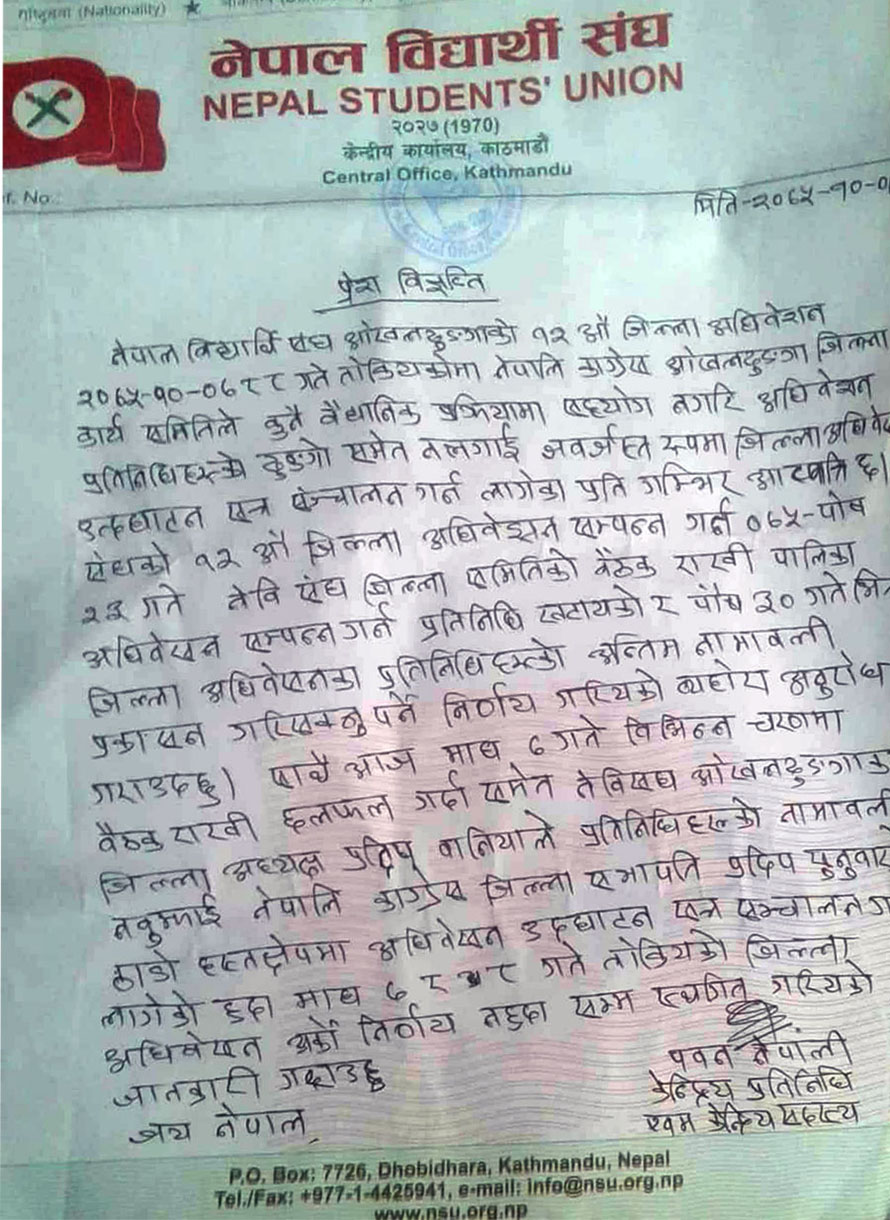 (Nationality)
नेपाल विद्यार्थी संघ
NEPAL STUDENTS' UNION
२०२७ (1970)
केन्द्रीय कार्यालय, काठमाडौं
Central Office, Kathmandu
f. No.:
मिति-२०७५-१०-०
प्रेस विज्ञप्ति
नेपाल विद्यार्थि संघ ओखलढुङगाको १२ औ जिल्ला अधिवेशन
२०७५-१०-०७ र ८ गते तोकियकोमा नेपालि काग्रेस ओखलढुङगा जिल्ला
कार्य समितिले कुनै वैधानिक प्रक्रियामा सहयोग नगरि अधिवेशन
प्रतिनिधिहरुको टुङगो समेत नलगाई जवर्जस्त रुपमा जिल्ला अधिवे
उदघाटन सत्र संञ्चालन गर्न लागेका प्रति गम्भिर आपत्ति छ।
संघको १२ औ जिल्ला अधिवेशन सम्पन्न गर्न ०७५-पौष
२३ गते नेवि संघ जिल्ला समितिको वैठक राखी पालिका
अधिवेसन सम्पन्न गर्न प्रतिनिधि खटायको र पौष ३० गते भि
जिल्ला अधिवेसनका प्रतिनिधिहरुको अन्तिम नामावली
प्रकासन गरिसक्नुपर्ने निर्णय गरियको व्यहोरा अनुरोध
गराउदछु। साथै आज माघ ७ गते विभिन्न चरणमा
वैठक राखी छलफल गर्दा समेत नेविसंघ ओखलढुङगाक
जिल्ला अध्यक्ष प्रदिप वानियाले प्रतिनिधिहरुको नामावली
नवुझाई नेपालि काग्रेस जिल्ला सभापति प्रदिप सुनुवारे
ठाडो हस्तक्षेपमा अधिवेसन उदघाटन सत्र सञ्चालन ग
लागेको हुदा माघ ७ र ८ गते तोकियको जिल्ला
अधिवेसन अर्को निर्णय नहुदा सम्म स्थगित गरियको
जानकारी गराउछु
जय नेपाल
पवन नेपाली
केन्द्रिय प्रतिनिधि
एवम केन्द्रिय सदस्य
P.O. Box: 7726, Dhobidhara, Kathmandu, Nepal
Tel./Fax: +977-1-4425941, e-mail: info@nsu.org.np
www.nsu.org.np